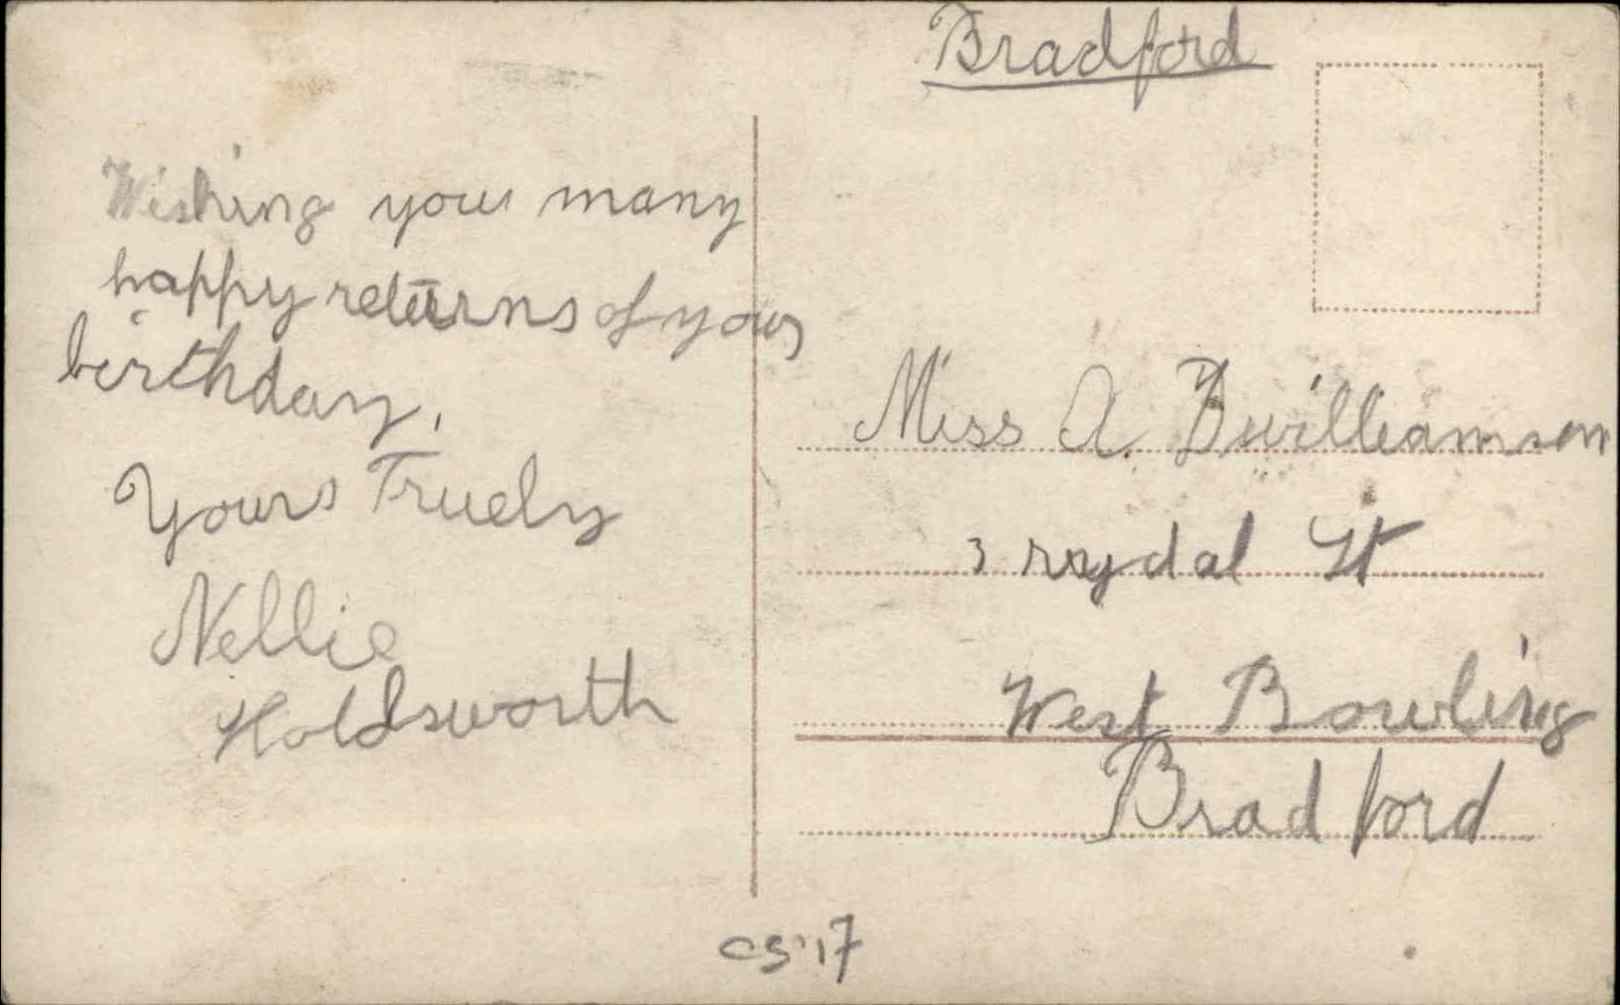 Bradford
Wishing your many
happy returns of your
birthday,
Yours Truely
Nellie
Holdsworth
Miss A. Bwilliamson
3 raydal St
West Bowling
Bradford
CS'17